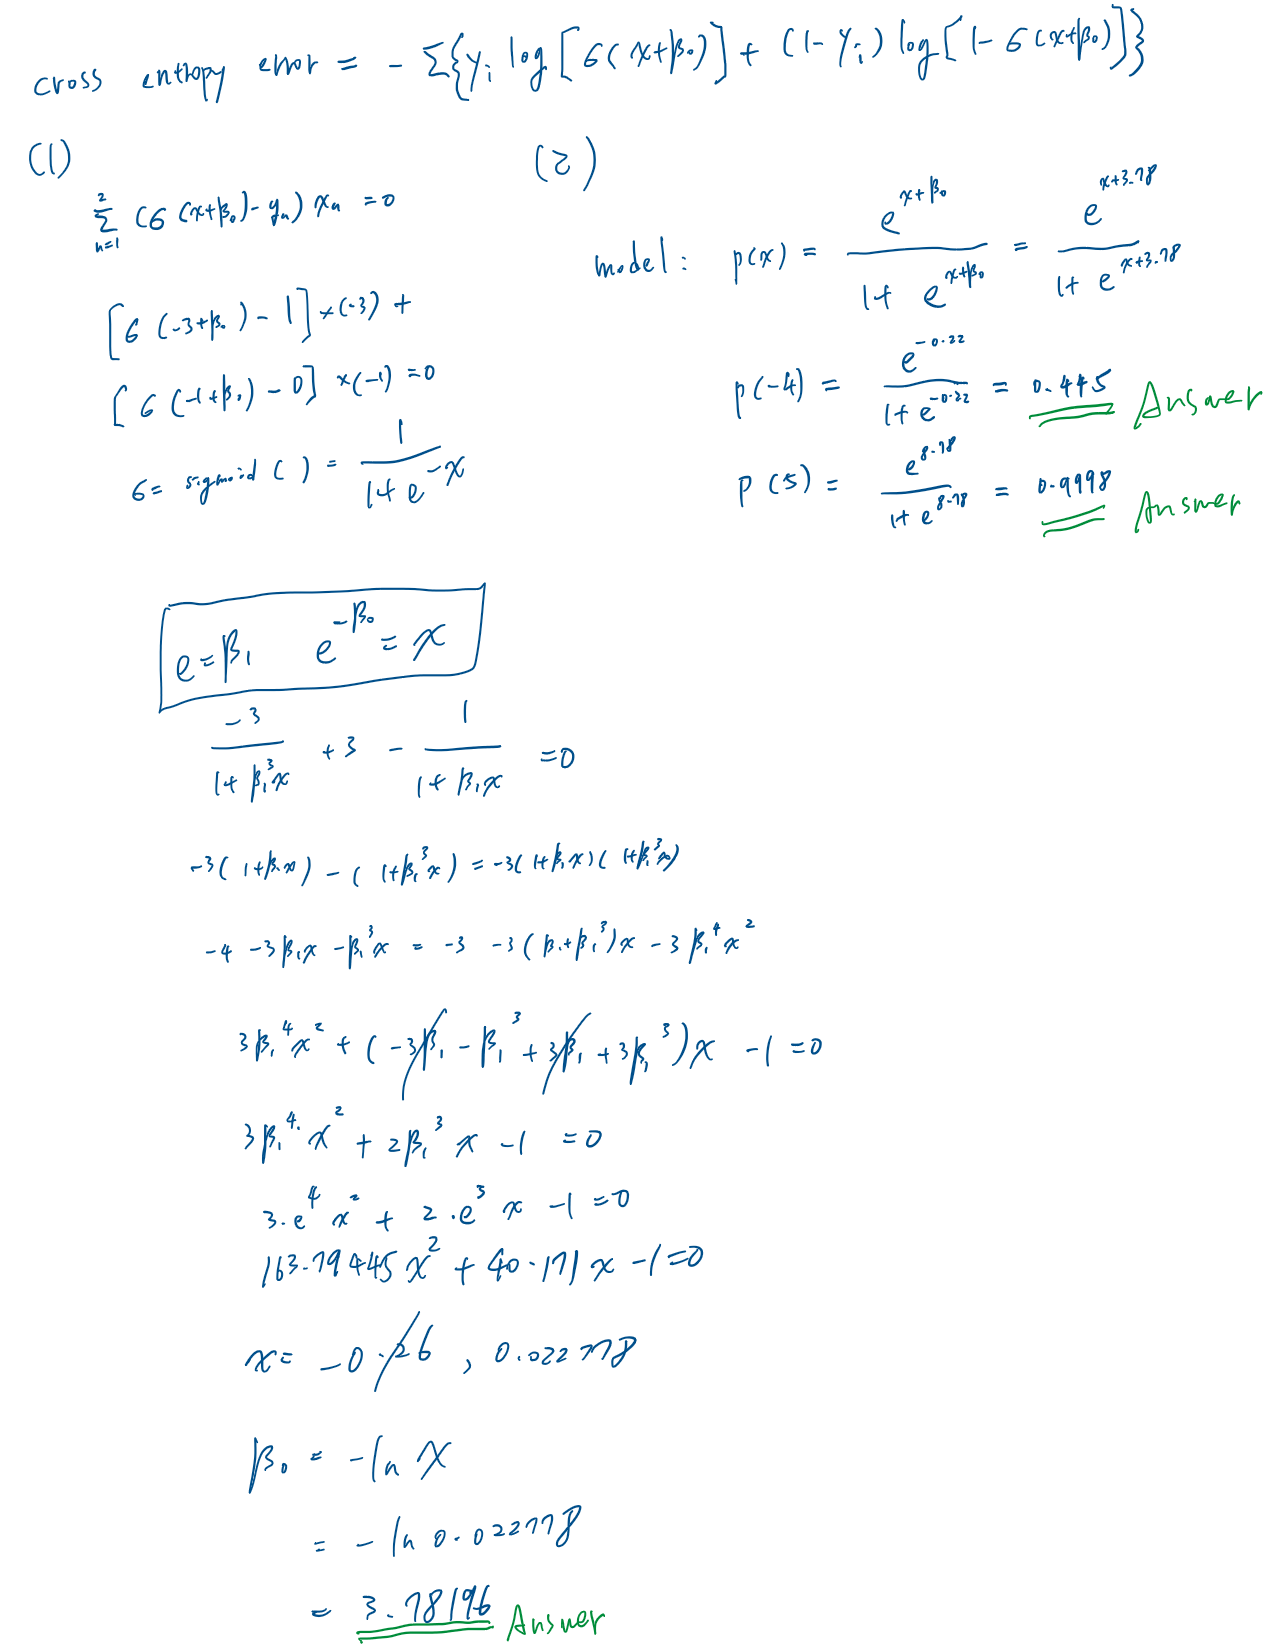 cross entropy error = - Σ{yᵢ log[6(x+β₀)] + (1-yᵢ) log[1-6(x+β₀)]}
(1)
2
Σ (6(x+β₀)-yₙ) xₙ = 0
n=1
[6(-3+β₀)-1]×(-3) +
[6(-1+β₀)-0]×(-1) = 0
6 = sigmoid ( ) = 1/(1+e^-x)
e=β₁ e^-β₀ = x
-3/(1+β₁³x) + 3 - 1/(1+β₁x) = 0
-3(1+β₁x) - (1+β₁³x) = -3(1+β₁x)(1+β₁³x)
-4 -3β₁x -β₁³x = -3 -3(β₁+β₁³)x - 3β₁⁴x²
3β₁⁴x² + (-3β₁ - β₁³ + 3β₁ + 3β₁³)x - 1 = 0
3β₁⁴·x² + 2β₁³ x - 1 = 0
3·e⁴ x² + 2·e³ x - 1 = 0
163.79445x² + 40.171x - 1 = 0
x = -0.26 , 0.022778
β₀ = -ln x
= -ln 0.022778
= 3.78196 Answer
(2)
model: p(x) = e^(x+β₀)/(1+e^(x+β₀)) = e^(x+3.78)/(1+e^(x+3.78))
p(-4) = e^-0.22/(1+e^-0.22) = 0.445 Answer
P(5) = e^8.78/(1+e^8.78) = 0.9998 Answer